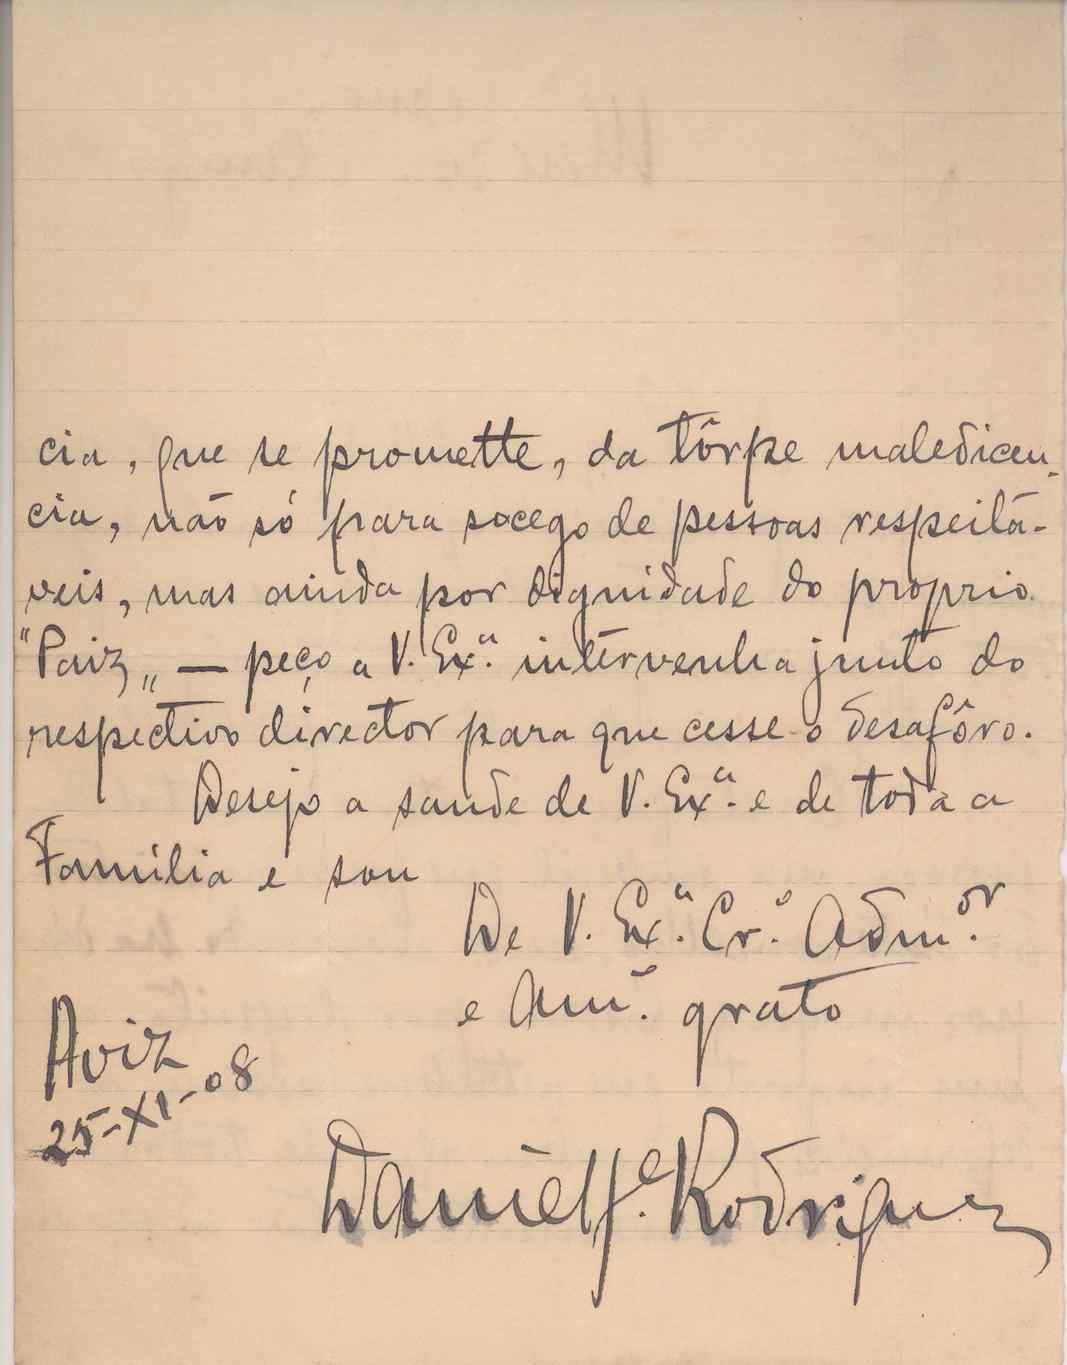 cia, que se promette, da tôrpe maledicen-
cia, não só para socego de pessoas respeitá-
veis, mas ainda por dignidade do proprio
"Paiz„ — peço a V. Exª. intervenha junto do
respectivo director para que cesse o desafôro.
Desejo a saude de V. Exª. e de toda a
Família e sou
De V. Exª. Crº. Admºʳ.
e Amº. grato
Aviz
25-XI-08
Daniel Jᵉ. Rodrigues